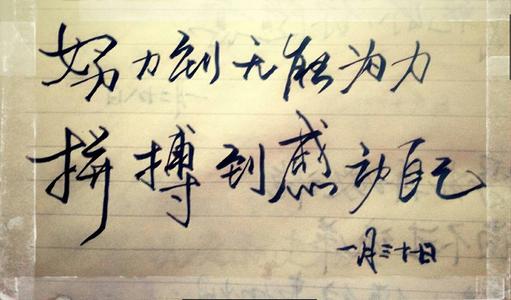 努力到无能为力
拼搏到感动自己
一月三十一日